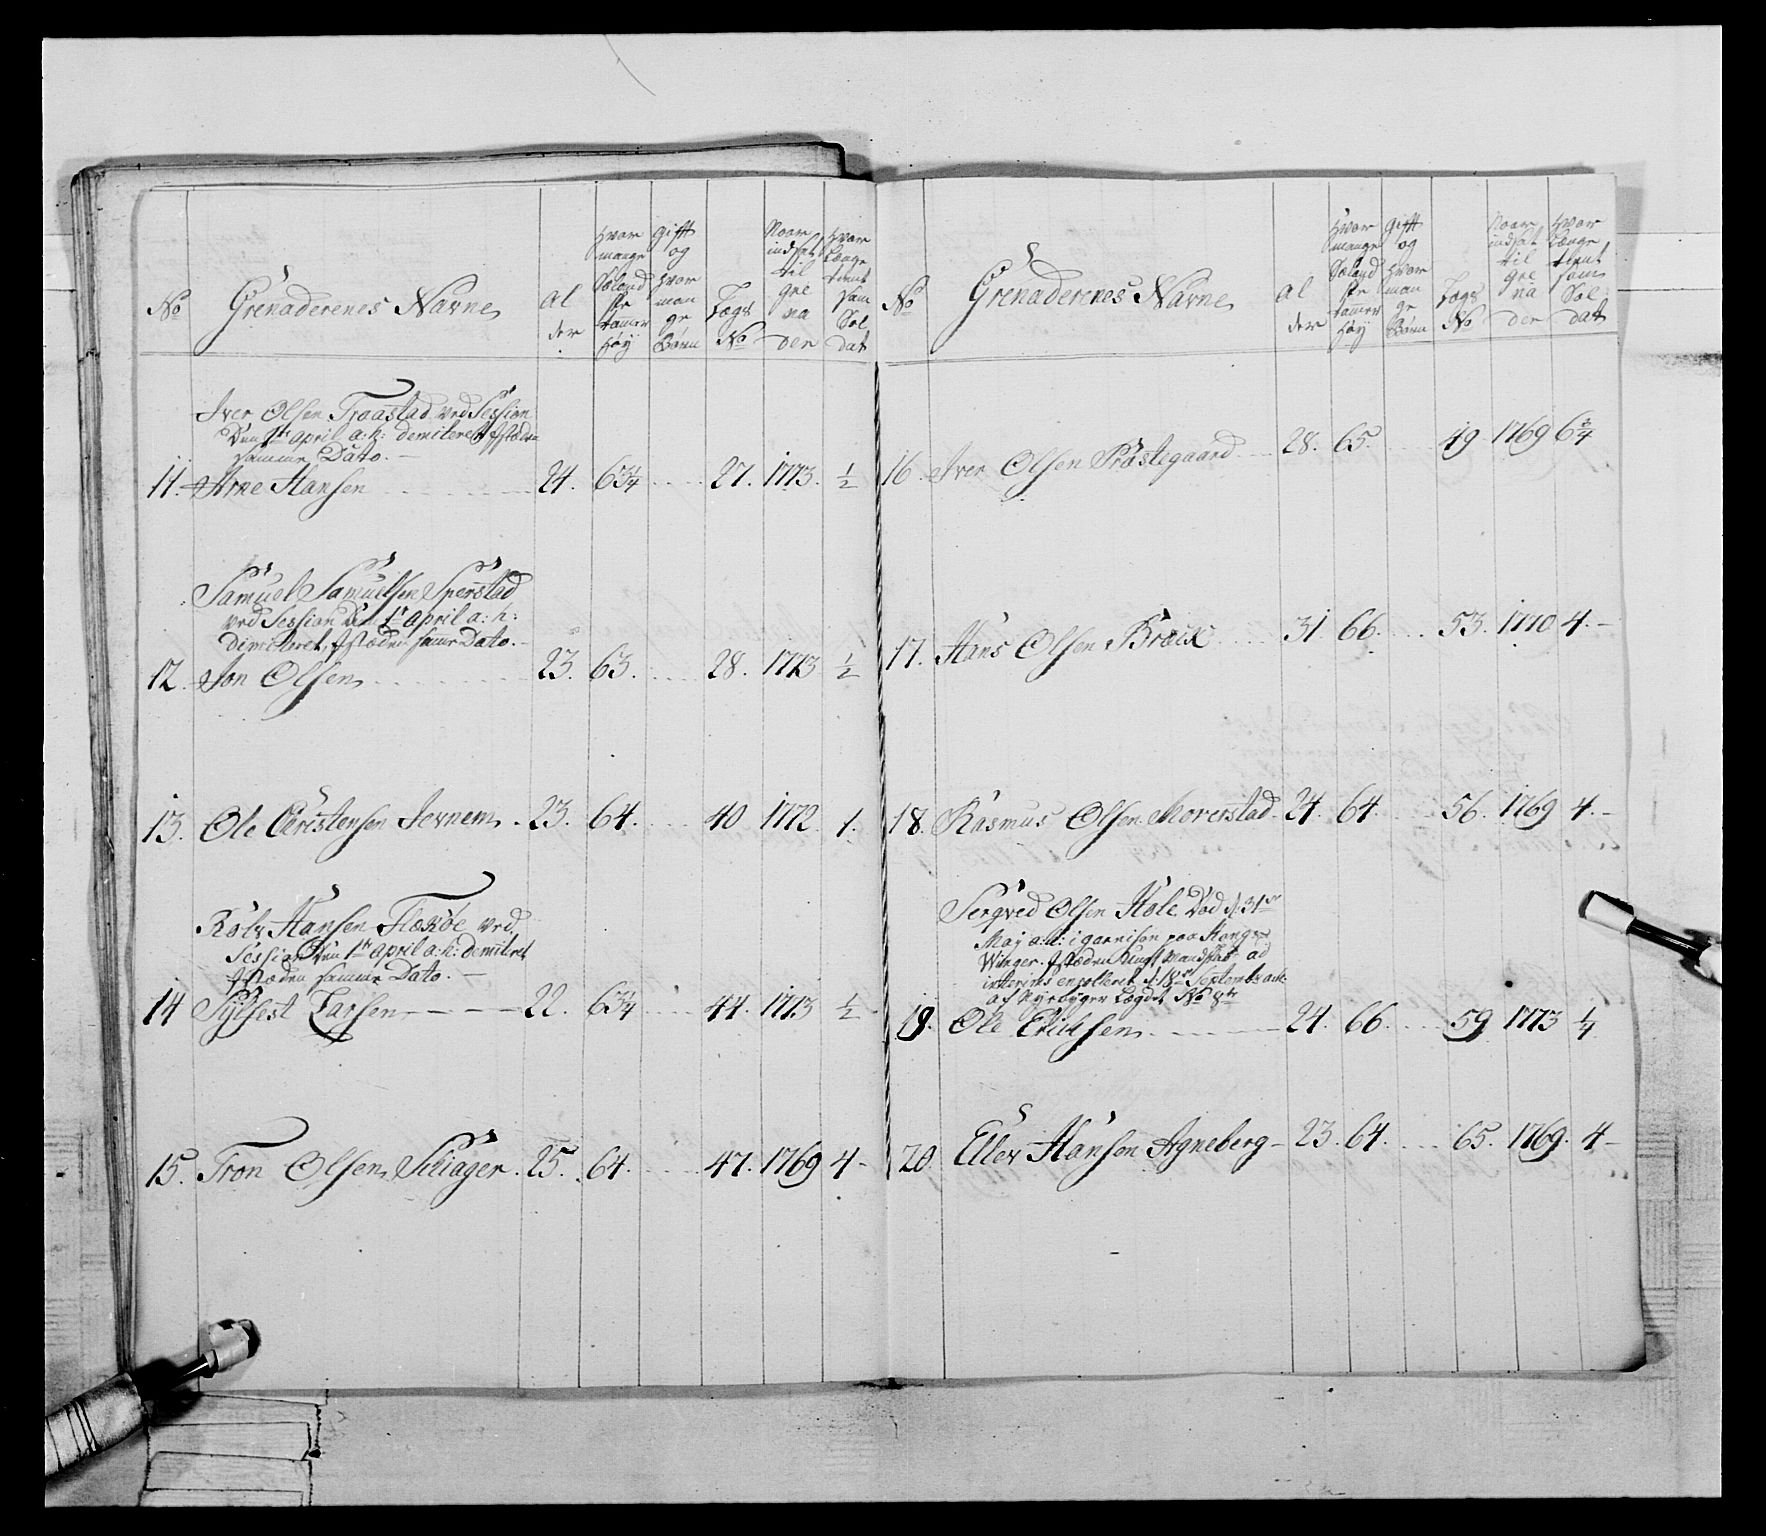 No
Grenaderenes Navne
Al
der
Hvor
mange
Sæland
ske
tommer
høy
gift
og
hvor
man
ge
Børn
Lægs
No
Naar
indsat
til
gre
na
der
Hvor
længe
tient
som
Sol
dat
Iver Olsen Traastad ved Session
den 1te april a: h: demiteret Istæden
samme Dato.
11. Arne Hansen 24. 63 3/4 27. 1773. 1/2
Samuel Samuelsen Sperstad
ved Session den 1te april a: h:
Dimiteret, Istæden samme Dato.
12. Jon Olsen 23. 63. 28. 1773 1/2
13. Ole Christensen Jevnem. 23. 64. 40 1772. 1.
Rolv Hansen Flexøe ved
Session den 1te april a: h: demiteret
Istæden samme Dato.
14 Sylfest Larsen 22. 63 3/4 44. 1773 1/2
15. Tron Olsen Skiager. 25. 64. 47. 1769 4
No
Grenaderenes Navne
Al
der
Hvor
mange
Sæland
ske
tomer
høy
gift
og
hvor
man
ge
Børn
Lægs
No
Naar
indsat
til
gre
na
der
Hvor
længe
tient
som
Sol
dat
16. Iver Olsen Præstegaard 28. 65. 49 1769 6 3/4
17. Hans Olsen Bræck 31 66. 53. 1770 4.
18. Rasmus Olsen Morerstad 24. 64. 56. 1769 4.
Sergved Olsen Hole Død d: 31te
May a: h: i garnison paa Kongs
Winger. Istæden Mandskab ad
interims enrolleret d: 18de Septembr
af Lægdet No 8te
19. Ole Ericksen 24. 66. 59 1773 1/4
20. Ellev Hansen Agneberg 23. 64. 65. 1769. 4